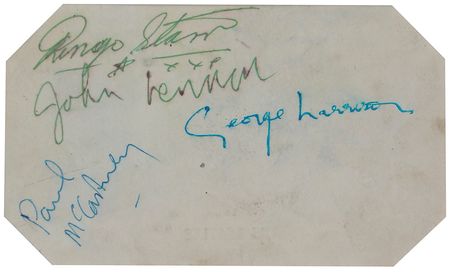 Ringo Starr
John Lennon xxx
George Harrison
Paul
McCartney